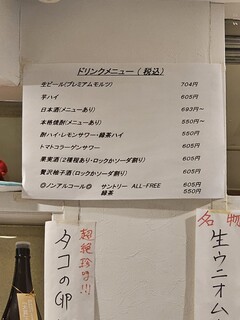 ドリンクメニュー（税込）
生ビール(プレミアムモルツ) 704円
芋ハイ 605円
日本酒(メニューあり) 693円～
本格焼酎(メニューあり) 550円～
酎ハイ・レモンサワー・緑茶ハイ 550円
トマトコラーゲンサワー 605円
果実酒(2種程あり・ロックかソーダ割り) 605円
贅沢柚子酒(ロックかソーダ割り) 605円
◎ノンアルコール◎ サントリー ALL-FREE 605円
緑茶 550円
名物
生ウニオム
超絶珍味!!!
タコの卵